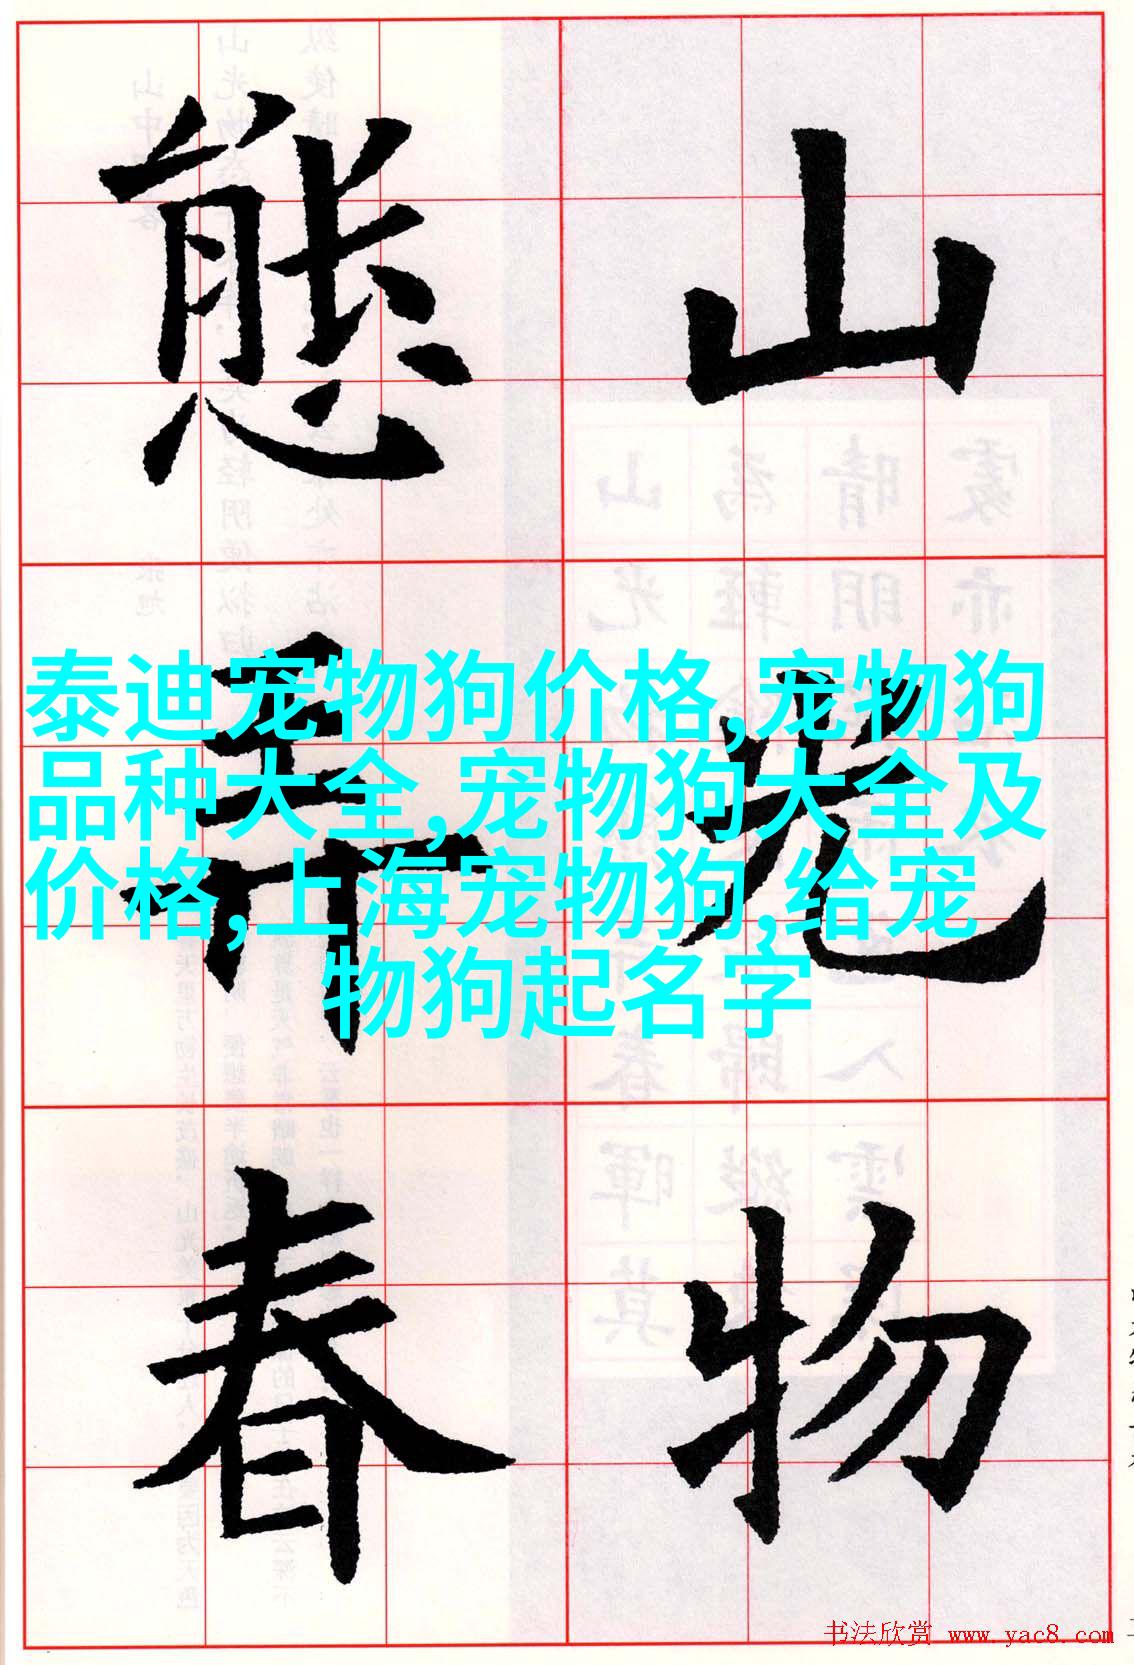 山光物
態弄春
泰迪宠物狗价格,宠物狗
品种大全,宠物狗大全及
价格,上海宠物狗,给宠
物狗起名字
书法欣赏 www.yac8.com